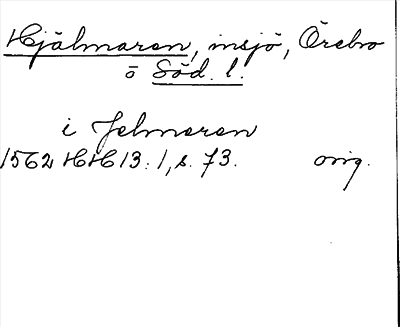 Hjälmaren, insjö, Örebro
o Söd. l.
i Jelmaren
1562 HH 13:1, s. 73. orig.